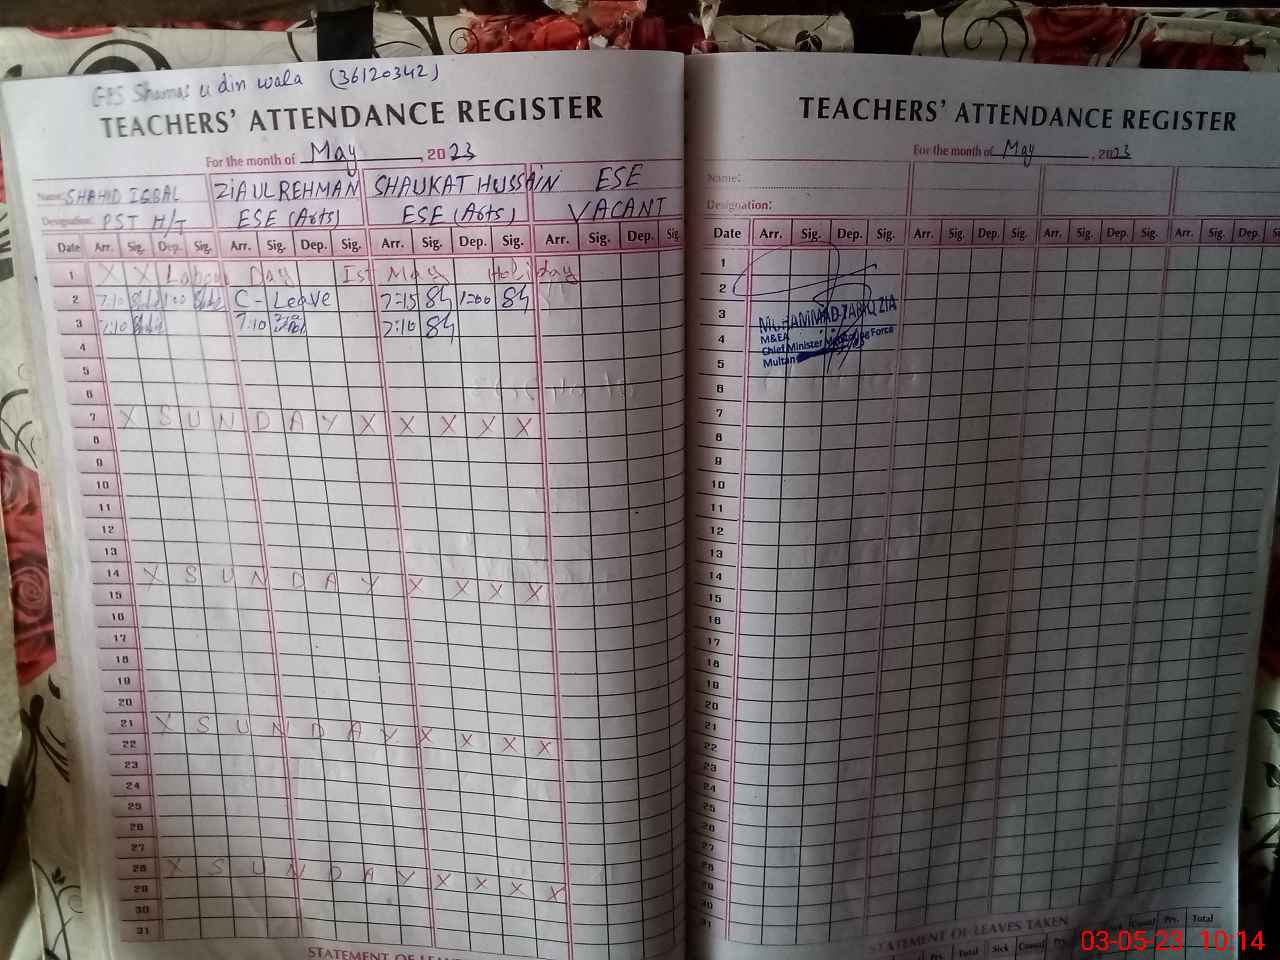 GPS Shamas u din wala (36120342)
TEACHERS' ATTENDANCE REGISTER
For the month of May, 2023
Name: SHAHID IQBAL ZIA UL REHMAN SHAUKAT HUSSAIN ESE
Designation: PST H/T ESE (Arts) ESE (Arts) VACANT
Date Arr. Sig. Dep. Sig. Arr. Sig. Dep. Sig. Arr. Sig. Dep. Sig. Arr. Sig. Dep. Sig.
1 X X Labour Day Ist May Holiday
2 7:10 1:00 C-Leave 7:15 Sh 1:00 Sh
3 7:10 7:10 7:10 Sh
4
5
6
7 X S U N D A Y X X X X X
8
9
10
11
12
13
14 X S U N D A Y X X X X
15
16
17
18
19
20
21 X S U N D A Y X X X X
22
23
24
25
26
27
28 X S U N D A Y X X X X
29
30
31
STATEMENT OF LEAVE
TEACHERS' ATTENDANCE REGISTER
For the month of May, 2023
Name:
Designation:
Date Arr. Sig. Dep. Sig. Arr. Sig. Dep. Sig. Arr. Sig. Dep. Sig. Arr. Sig. Dep.
1
2
3
4
5
6
7
8
9
10
11
12
13
14
15
16
17
18
19
20
21
22
23
24
25
26
27
28
29
30
31
MUHAMMAD TARIQ ZIA
M&EA
Chief Minister Monitoring Force
Multan
STATEMENT OF LEAVES TAKEN
Casual Prv. Total
Prv. Total Sick Casual
03-05-23 10:14